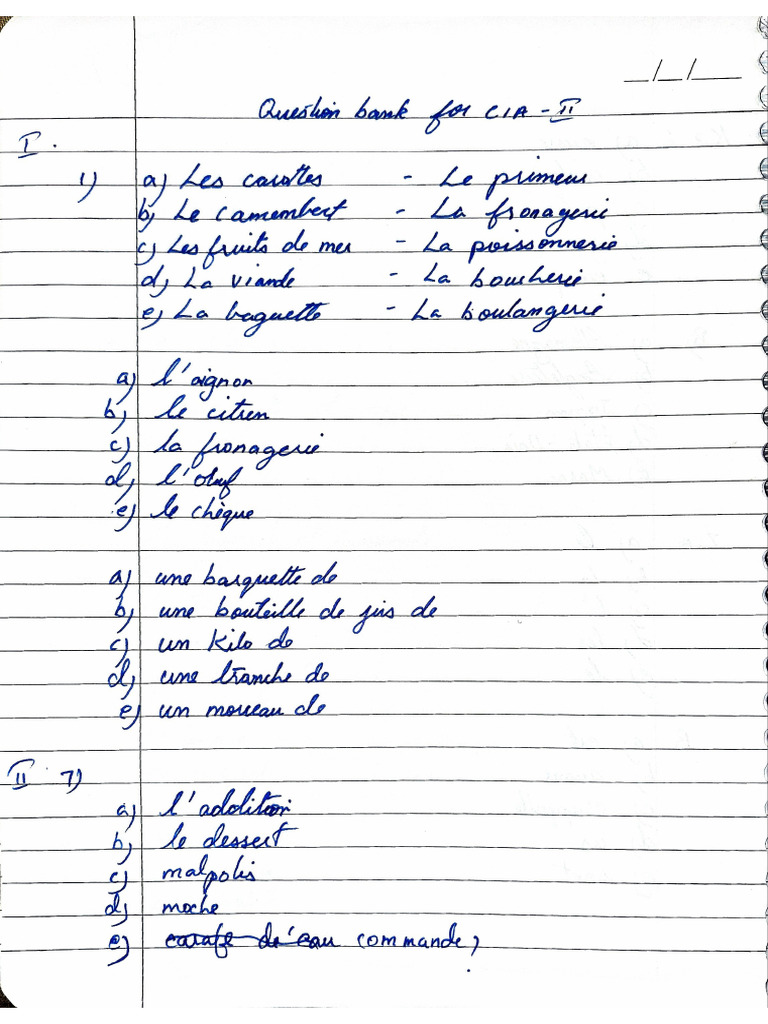 _/_/__
Question bank for CIA - II
I.
1) a) Les carottes - Le primeur
b) Le camembert - La fromagerie
c) Les fruits de mer - La poissonnerie
d) La viande - La boucherie
e) La baguette - La boulangerie
a) l'oignon
b) le citron
c) la fromagerie
d) l'oeuf
e) le chèque
a) une barquette de
b) une bouteille de jus de
c) un kilo de
d) une tranche de
e) un morceau de
II 7)
a) l'addition
b) le dessert
c) malpolis
d) moche
e) carafe de'eau commande,